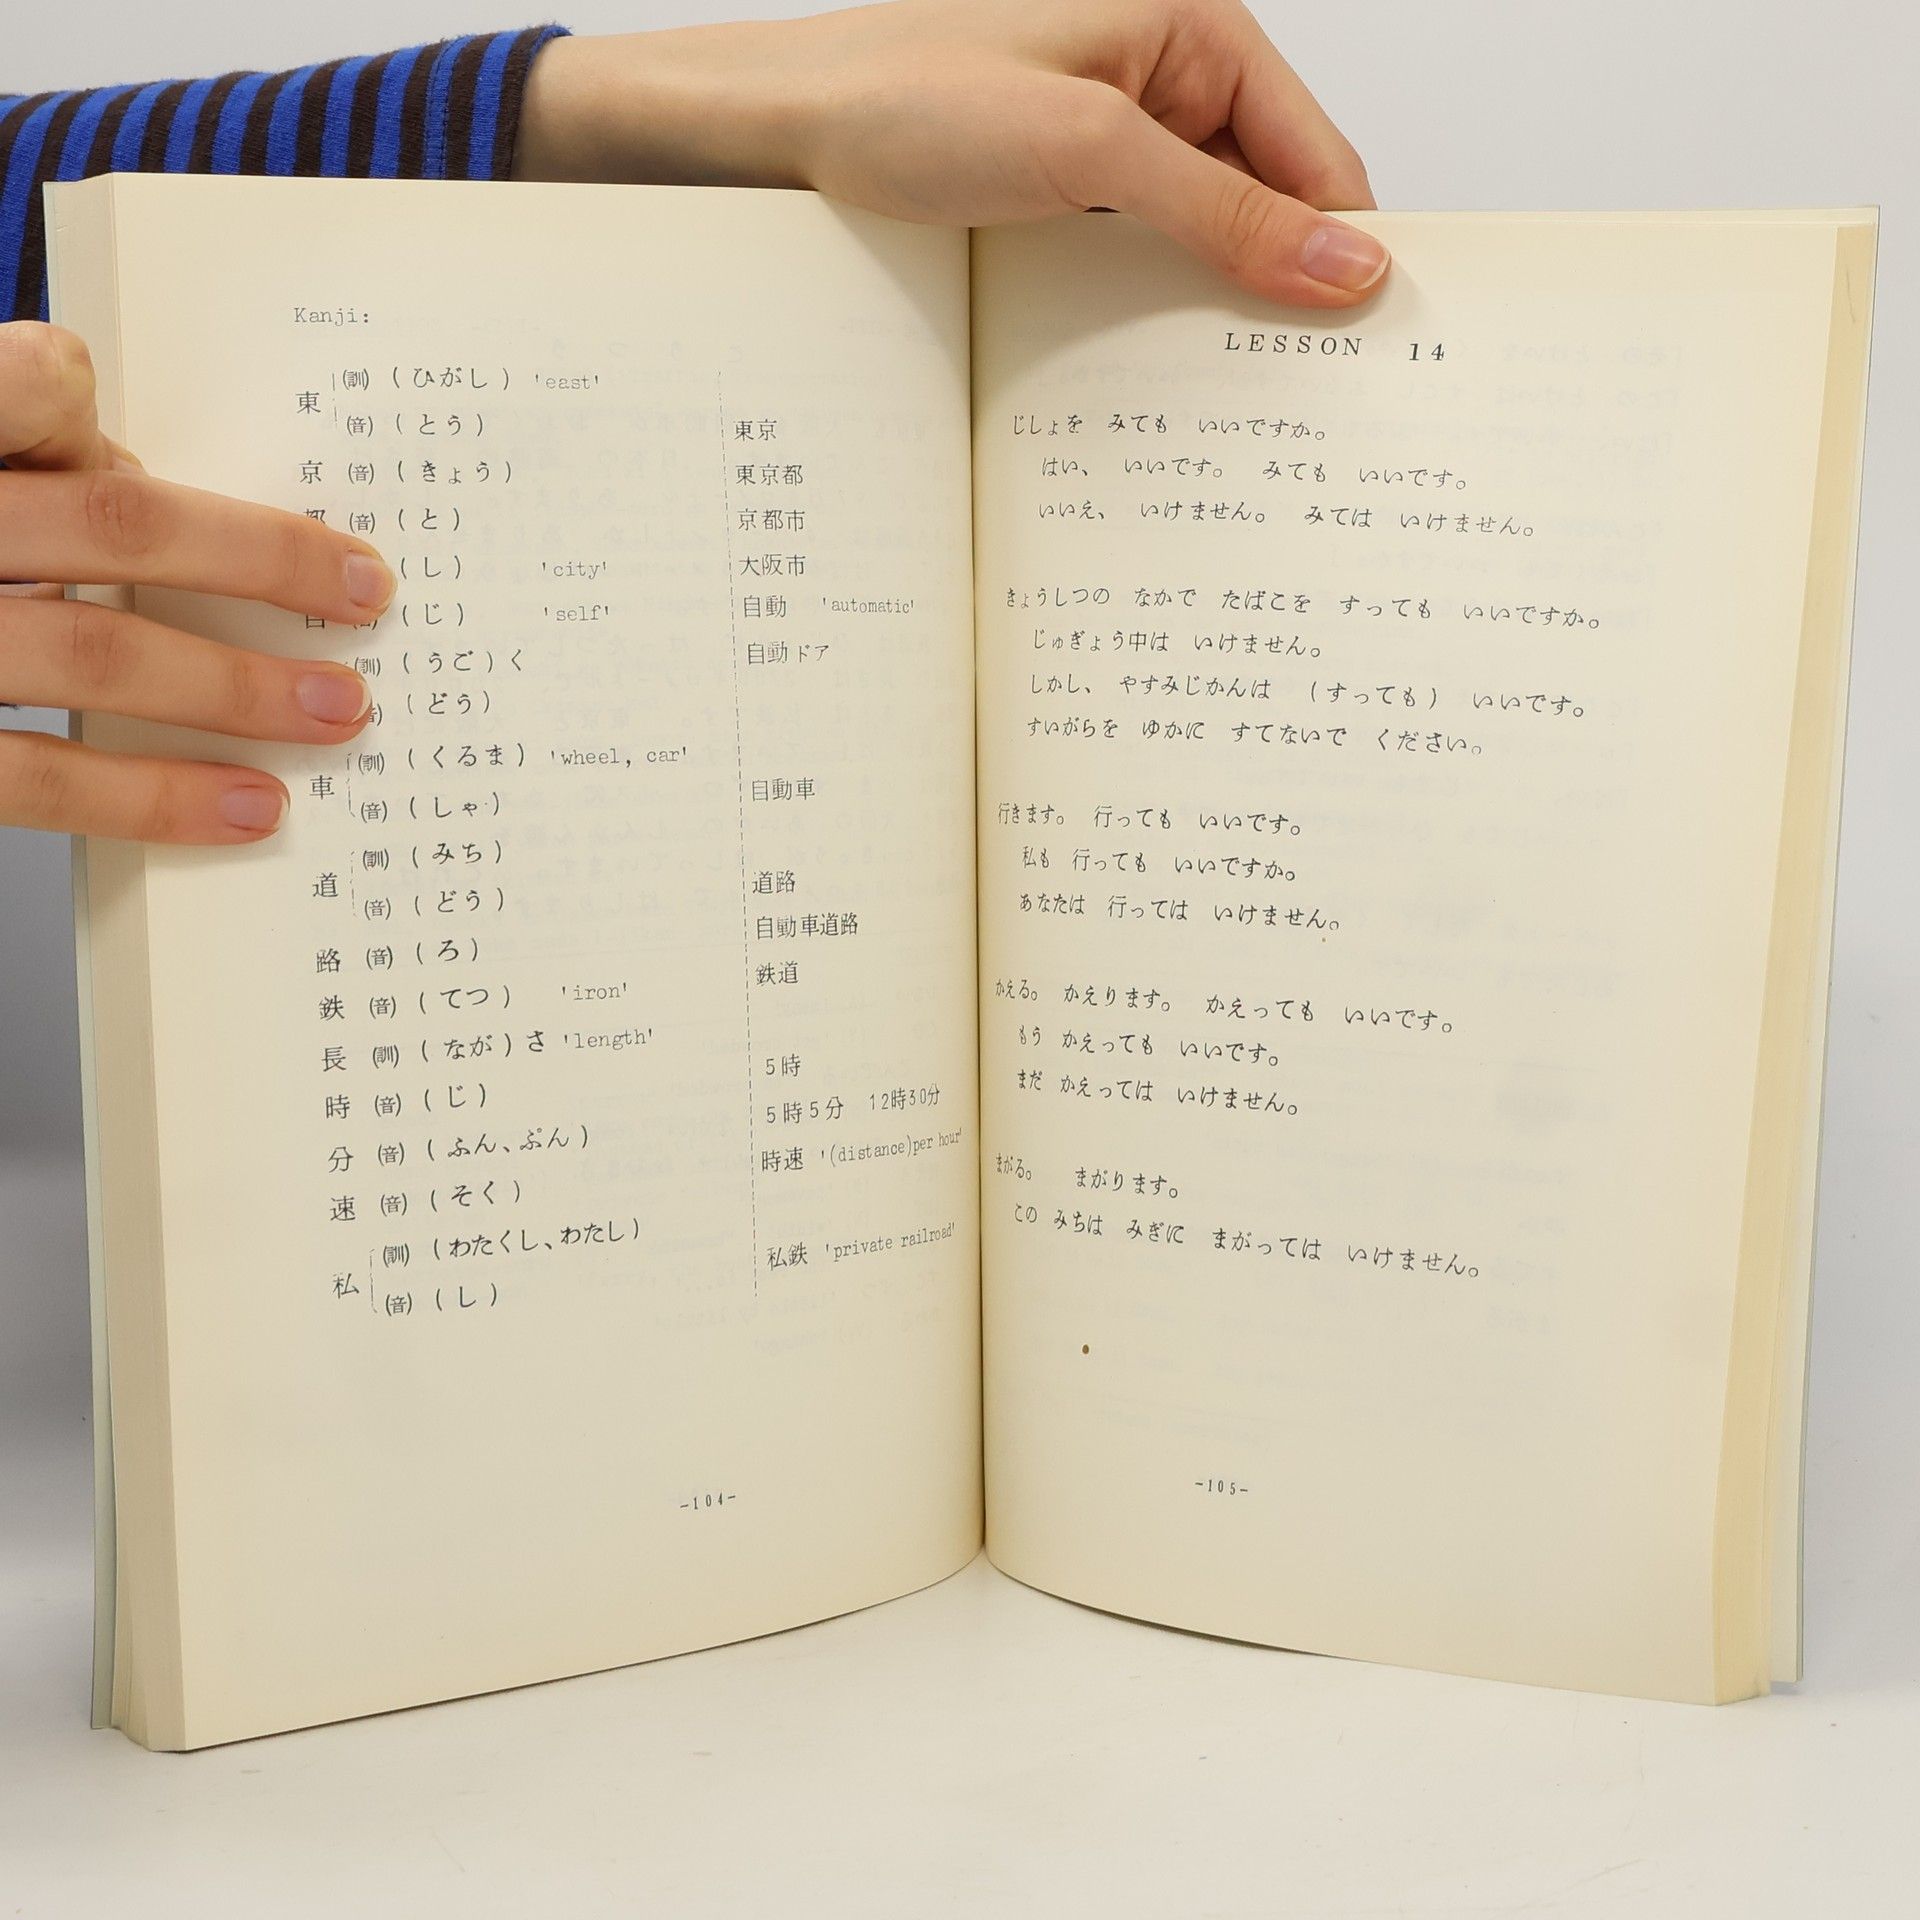 Kanji:
東 (訓) (ひがし) 'east'
(音) (とう) 東京
京 (音) (きょう) 東京都
(音) (と) 京都市
(し) 'city' 大阪市
(じ) 'self' 自動 'automatic'
(訓) (うご)く 自動ドア
(どう)
車 (訓) (くるま) 'wheel, car'
(音) (しゃ) 自動車
道 (訓) (みち)
(音) (どう) 道路
路 (音) (ろ) 自動車道路
鉄 (音) (てつ) 'iron' 鉄道
長 (訓) (なが)さ 'length'
時 (音) (じ) 5時
分 (音) (ふん、ぷん) 5時5分 12時30分
速 (音) (そく) 時速 '(distance)per hour'
私 (訓) (わたくし、わたし)
(音) (し) 私鉄 'private railroad'
-104-
LESSON 14
じしょを みても いいですか。
はい、 いいです。 みても いいです。
いいえ、 いけません。 みては いけません。
きょうしつの なかで たばこを すっても いいですか。
じゅぎょう中は いけません。
しかし、 やすみじかんは (すっても) いいです。
すいがらを ゆかに すてないで ください。
行きます。 行っても いいです。
私も 行っても いいですか。
あなたは 行っては いけません。
かえる。 かえります。 かえっても いいです。
もう かえっても いいです。
まだ かえっては いけません。
まがる。 まがります。
この みちは みぎに まがっては いけません。
-105-